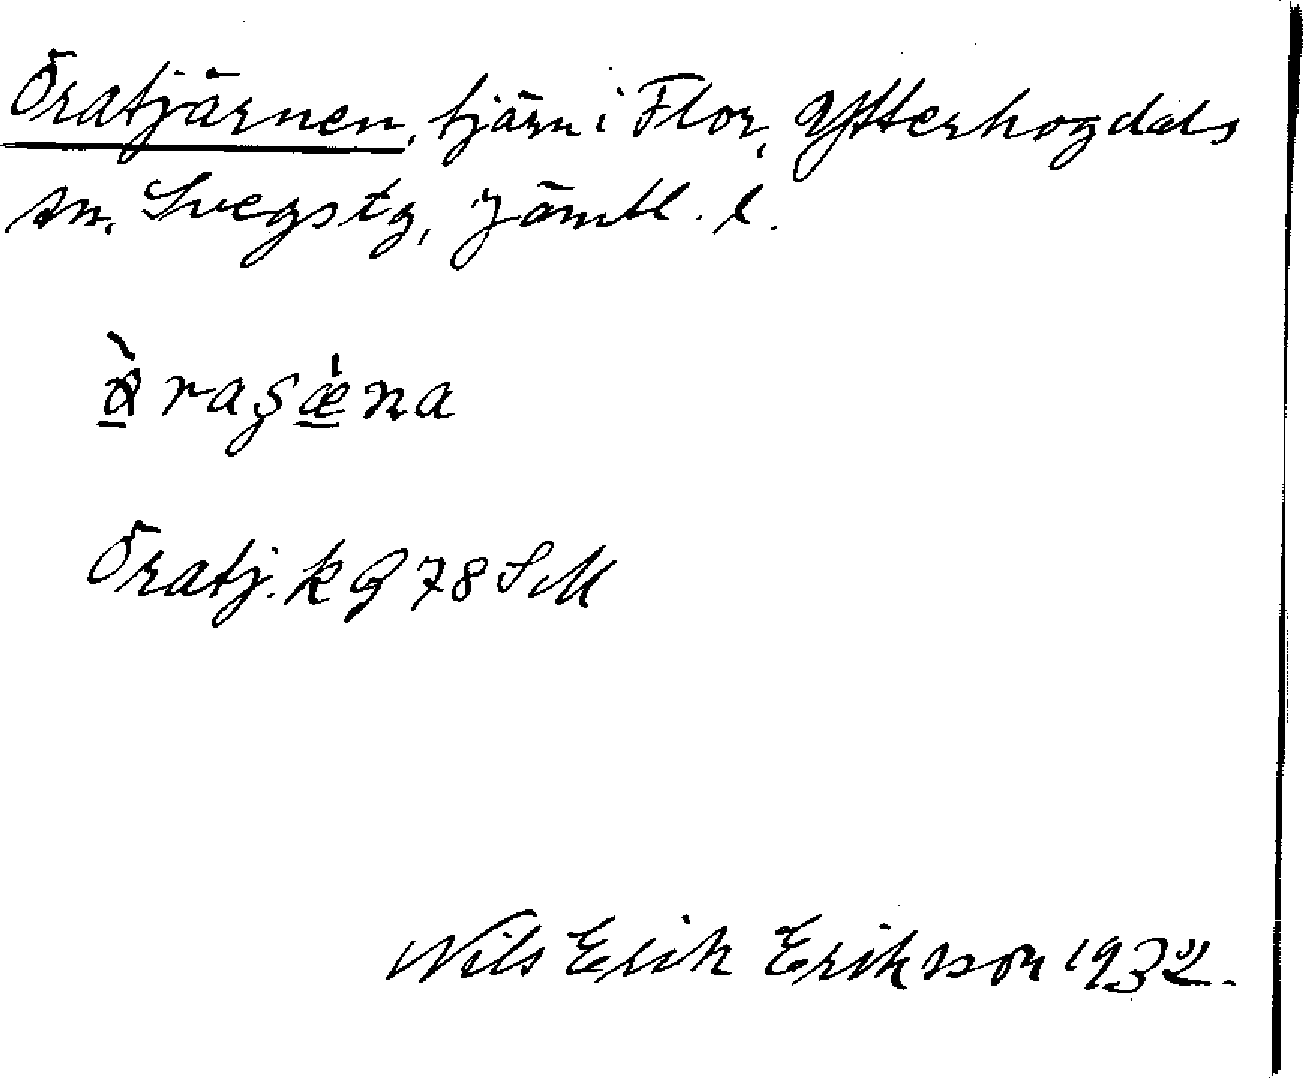 Öratjärnen, tjärn i Flor, Ytterhogdals
sn. Svegs tg, Jämtl. l.
Öratj. k G 78 SM
Nils Erik Eriksson 1932.